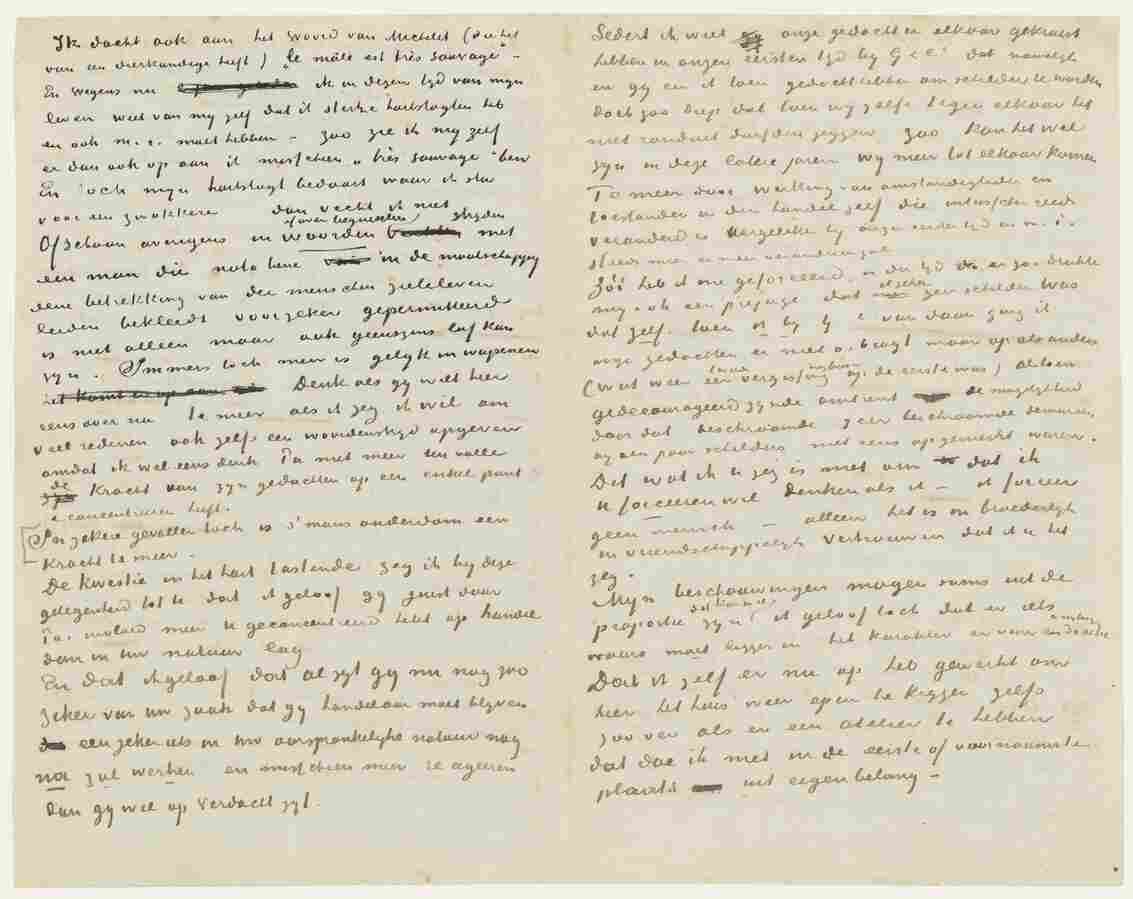 Ik dacht ook aan het woord van Michelet (die het
van een dierkundige heeft) le mâle est très sauvage –
En wegens nu ik in dezen tyd van myn
leven weet van my zelf dat ik sterke hartstogten heb
en ook m.i. moet hebben – zoo zie ik my zelf
er dan ook op aan ik misschien „très sauvage" ben
En toch myn hartstogt bedaart waar ik sta
voor een zwakkere dan vecht ik niet
Ofschoon overigens in woorden of over beginselen stryden met
een man die nota bene in de maatschappy
eene betrekking van der menschen zieleleven
leiden bekleedt voorzeker gepermitteerd
is niet alleen maar ook geenszins laf kan
zyn. Immers toch men is gelyk in wapenen
Denk als gy wilt hier
eens over na te meer als ik zeg ik wil om
veel redenen ook zelfs een woordenstryd opgeven
omdat ik wel eens denk Pa niet meer ten volle
de kracht van zyn gedachten op een enkel punt
te concentreren heeft.
In zekere gevallen toch is s'mans ouderdom een
kracht te meer.
De kwestie in het hart tastende zeg ik by deze
gelegenheid tot U dat ik geloof gy juist door
Pa's invloed meer U geconcentreerd hebt op handel
dan in Uw natuur lag
En dat ik geloof dat al zyt gy nu nog zoo
zeker van uw zaak dat gy handelaar moet blyven
een zeker iets in Uw oorspronkelyke natuur nog
na zal werken en misschien meer reageeren
dan gy wel op verdacht zyt.
Sedert ik weet onze gedachten elkaar gekruist
hebben in onzen eersten tyd by G & Cie dat namelyk
en gy en ik toen gedacht hebben om schilder te worden
doch zoo diep dat toen wy zelfs tegen elkaar het
niet ronduit durfden zeggen zoo kon het wel
zyn in deze latere jaren wy meer tot elkaar komen
Te meer door werking van omstandigheden en
toestanden in den handel zelf die intusschen reeds
veranderd is vergeleken by onze eerste tyd en m.i.
steeds meer en meer veranderen zal.
Zóó heb ik me geforceerd in die tyd en zoo drukte
my ook een préjugé dat ik zeker geen schilder was
dat zelfs toen ik by G & C van daan ging ik
myn gedachten er niet op bragt maar op iets anders
(wat weer een tweede vergissing was boven op de eerste was) alstoen
gedecourageerd zynde omtrent de mogelykheid
door dat beschroomde zeer beschroomde demarches
by een paar schilders niet eens opgemerkt waren.
Dit wat ik U zeg is niet om dat ik
U forceeren wil denken als ik – ik forceer
geen mensch – alleen het is in broederlyk
en vriendschappelyk vertrouwen dat ik U het
zeg.
Myn beschouwingen mogen soms uit de
proportie zyn dat kan wel ik geloof toch dat er iets
waars moet liggen in het karakter er van en de actie en rigting
Dat ik zelf er nu op heb gewerkt om
hier het huis weer open te krygen zelfs
zoo ver als er een atelier te hebben
dat doe ik niet in de eerste of voornaamste
plaats uit eigenbelang –